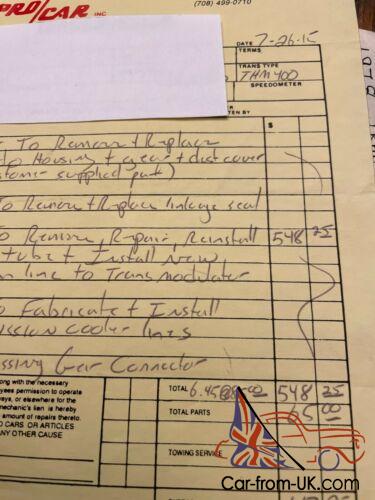 PRO/CAR INC
(708) 499-0710
DATE 7-26-15
TERMS
TRANS TYPE
THM400
SPEEDOMETER
TEN BY
$
To Remove + Replace
to Housing + gear + dust cover
stomer supplied part)
To Remove + Replace linkage seal
To Remove, Repair, Reinstall 548 25
tube + Install New
line to Trans modulator
To Fabricate + Install
ission cooler lines
ssing Gear Connector
ong with the necessary
yees permission to operate
ways, or elsewhere for the
mechanic's lien is hereby
amount of repairs thereto.
D CARS OR ARTICLES
NY OTHER CAUSE
TOTAL 6.45 548 25
TOTAL PARTS 65 00
TOWING SERVICE
Car-from-UK.com